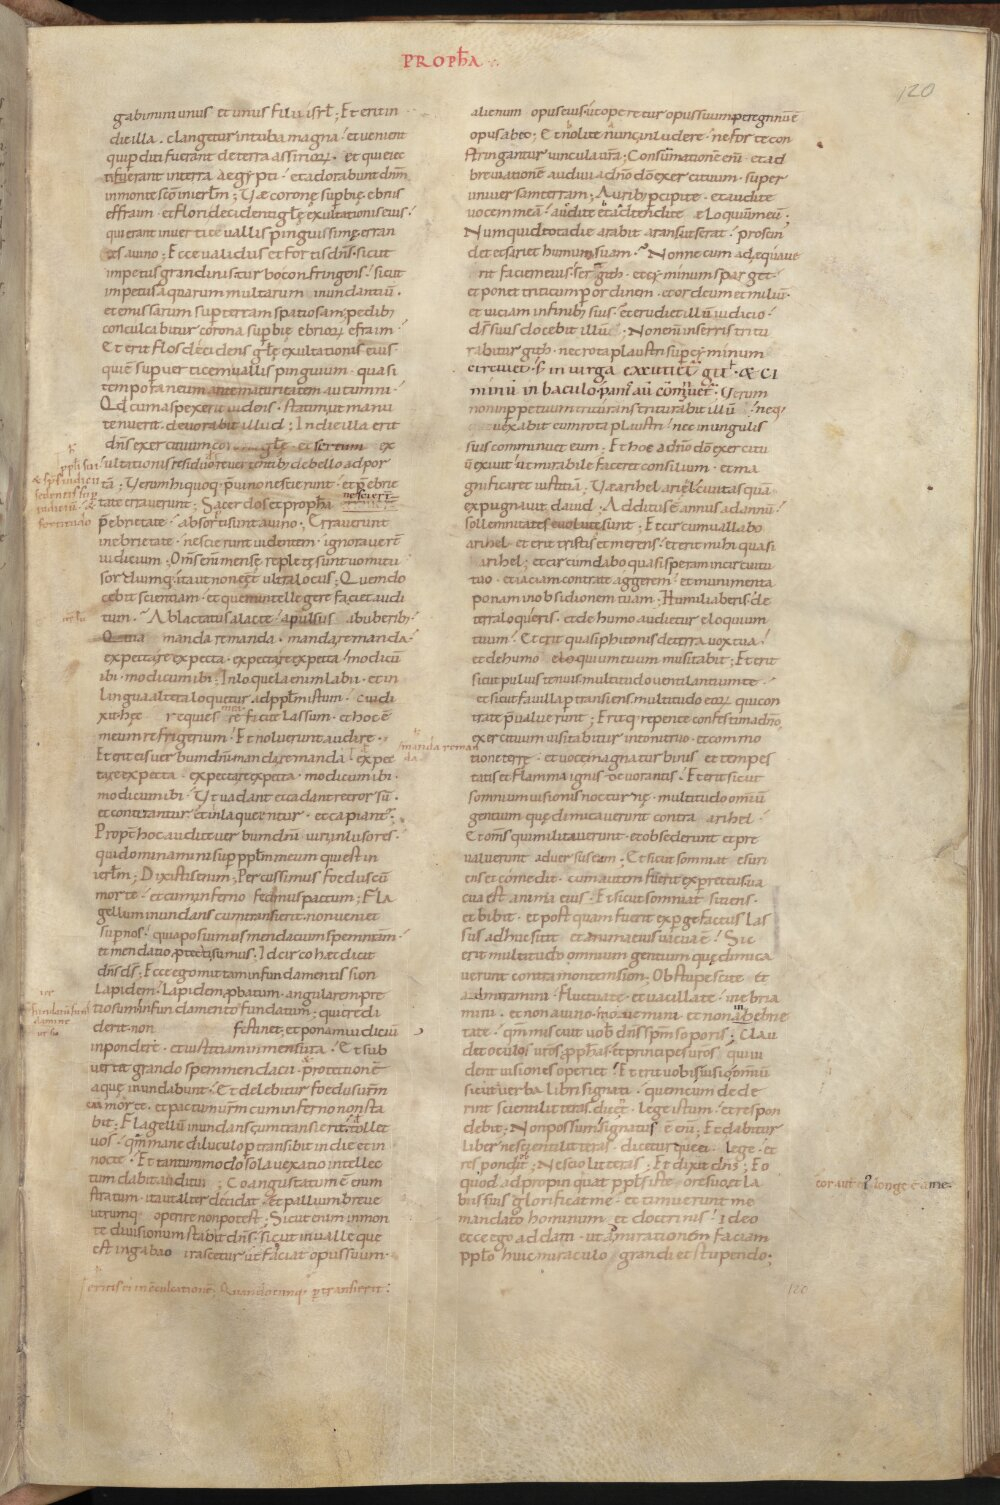 PROPhA
120
gabimini unus et unus filii isrl; Et erit in
die illa. clangetur in tuba magna. et venient
qui pditi fuerant de terra assirioꝝ. et qui eiec
ti fuerant in terra aegypti. et adorabunt dnm
in monte sco in ierlm; Uae coronę supbię ebriis
effraim. et flori decidenti glę exultationis eius.
qui erant in vertice vallis pinguissimę erran
tes a vino; Ecce validus et fortis dns. sicut
impetus grandinis turbo confringens. sicut
impetus aquarum multarum inundantiū.
et emissarum sup terram spatiosam; pedib;
conculcabitur corona supbię ebrioꝝ efraim.
Et erit flos decidens glę exultationis eius
que ē sup verticem vallis pinguium. quasi
temporaneum ante maturitatem autumni.
Qd cum aspexerit videns. statim ut manu
tenuerit devorabit illud; In die illa erit
dns exercituum corona glę. et sertum ex
ultationis residuo
revertentib; de bello ad por
tā; Verum hi quoq; p vino nescierunt. et p ebrie
tate erraverunt; Sacerdos et propha nescierī
p ebrietate. absorti sunt a vino; Erraverunt
in ebrietate. nescierunt videntem. ignoraverī
iudicium; Oms enim mense repletę sunt vomitu
sordiumq; ita ut non eēt ultra locus; Quem do
cebit scientiam. et quem intellegere faciet audi
tum. Ablactatus a lacte. apulsus ab uberib;
Quia manda remanda. manda remanda.
expecta reexpecta. expecta reexpecta. modicū
ibi. modicum ibi; In loquela enim labii. et in
lingua altera loquetur ad pplm istum. Cui di
xit hęc requies mea reficite lassum. et hoc ē
meum refrigerium. Et noluerunt audire.
Et erit eis verbum dni. manda remanda. expec
ta reexpecta. expecta reexpecta. modicum ibi.
modicum ibi. Ut vadant et cadant retrorsū.
et conterantur. et inlaqueentur. et capiant.
Propt hoc audite verbum dni. viri inlusores.
qui dominamini sup pplm meum qui est in
ierlm; Dixistis enim; Percussimus foedus cū
morte. et cum inferno fecimus pactum; Fla
gellum inundans cum transierit. non veniet
sup nos. quia posuimus mendacium spem nram.
et mendatio ptecti sumus; Idcirco haec dicit
dns ds; Ecce ego mittam in fundamentis sion
lapidem. lapidem pbatum. angularem pre
tiosum. in fundamento fundatum; qui credi
derit. non festinet; et ponam iudiciū
in pondere. et iustitiam in mensura. Et sub
vertet grando spem mendacii. et protectionē
aquę inundabunt. Et delebitur foedus urm
cū morte. et pactum urm cum inferno non sta
bit; Flagellū inundans cum transierit. tollet
vos. qm mane diluculo ptransibit in die et in
nocte. Et tantummodo sola vexatio intellec
tum dabit auditui; Coangustatum ē enim
stratum. ita ut alter decidat. et pallium breve
utrumq; operire non potest; Sicut enim in mon
te divisionum stabit dns. sicut in valle que
est in gabao irascetur. ut faciat opus suum.
eritis ei in cculcationē; Quandocumq; ptransierit:
manda reman
da
alienum opus eius. ut operetur opus suum peregrinū ē
opus ab eo; Et nc nolite inludere. ne forte con
stringantur vincula vra; Consūmationē eni. et ad
breviationē audivi a dno do exercituum. super
universam terram; Auribus pcipite. et audite
vocem meā. audite et adtendite eloquiū meū;
Numquid tota die arabit arans ut serat. proscin
det et sariet humum suam. Nonne cum adequave
rit faciem eius. seret gith. et cyminum sparget.
et ponet triticum p ordinem. et ordeum et miliū.
et viciam in finib; suis. et erudiet illū in iudicio.
ds suus docebit illū. Non enī in serris tritu
rabitur gith. nec rota plaustri sup cyminum
circuiet. s in virga excutiet git. & ci
minū in baculo. panis aū cōminuet. Verum
non in ppetuum triturans triturabit illū. neq;
vexabit eum rota plaustri. nec in ungulis
suis comminuet eum; Et hoc a dno do exercitu
ū exivit. ut mirabile faceret consilium. et ma
gnificaret iustitiā; Uae arihel ariel civitas quā
expugnavit david. Additus ē annus ad annū.
sollemnitates evolutę sunt. Et circumvallabo
arihel. et erit tristis et merens. et erit mihi quasi
arihel; et circumdabo quasi speram in circuitu
tuo. et iaciam contra te aggerem. et munimenta
ponam in obsidionem tuam; Humiliaberis. de
terra loqueris. et de humo audietur eloquium
tuum. Et erit quasi phitonis de terra vox tua.
et de humo eloquium tuum musitabit; Et erit
sicut pulvis tenuis multitudo ventilantium te.
et sicut favilla ptransiens multitudo eoꝝ qui con
tra te pvaluerunt; Eritq; repente confestim a dno
exercituum visitabitur in tonitruo. et commo
tione terrę. et voce magna turbinis et tempes
tatis et flammę ignis devorantis. Et erit sicut
somnium visionis nocturnę. multitudo omniū
gentium quę dimicaverunt contra arihel.
Et oms qui militaverunt. et obsederunt et pre
valuerunt adversus eam. Et sicut somniat esuri
ens et comedit. cum autem fuerit expgrectus va
cua est anima eius. Et sicut somniat sitiens.
et bibit. et postquam fuerit expgefactus las
sus adhuc sitit et anima eius vacua ē. Sic
erit multitudo omnium gentium quę dimica
verunt contra montem sion; Obstupescite et
admiramini. fluctuate et vacillate. inebria
mini. et non a vino. movemini et non ab ebrie
tate. qm miscuit vob dns spm soporis; Clau
det oculos vros. pphas et principes vros. qui vi
dent visiones operiet. Et erit vobis visio omniū
sicut verba libri signati. quem cum dede
rint scienti literas. dicēt. lege istum. et respon
debit. Non possum. signatus ē eni; Et dabitur
liber nescienti literas. dicetur que ei lege. et
respondit; Nescio literas; Et dixit dns; Eo
quod adpropinquat ppls iste ore suo. et la
biis suis glorificat me. et timuerunt me
mandato hominum et doctrinis. Ideo
ecce ego addam. ut admirationem faciam
pplo huic miraculo grandi et stupendo.
cor aut ei longe ē a me.
120